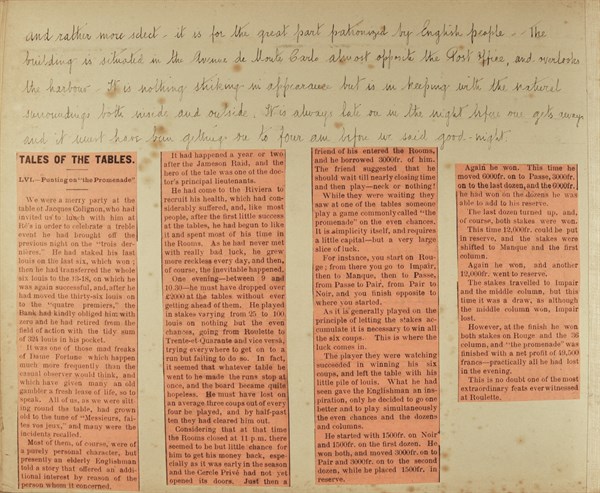 and rather more select - it is for the great part patronized by English people - The
building is situated in the Avenue de Monte Carlo almost opposite the Post Office, and overlooks
the harbour. It is nothing striking in appearance but is in keeping with the natural
surroundings both inside and outside. It is always late on in the night before one gets away
and it must have been getting on to four am before we said good-night.
TALES OF THE TABLES.
LVI.—Punting on "the Promenade"
We were a merry party at the
table of Jacques Colignon, who had
invited us to lunch with him at
Ré's in order to celebrate a treble
event he had brought off the
previous night on the "trois der-
nières." He had staked his last
louis on the last six, which won;
then he had transferred the whole
six louis to the 13-18, on which he
was again successful, and, after he
had moved the thirty-six louis on
to the "quatre premiers," the
Bank had kindly obliged him with
zero and he had retired from the
field of action with the tidy sum
of 324 louis in his pocket.
It was one of those mad freaks
of Dame Fortune which happen
much more frequently than the
casual observer would think, and
which have given many an old
gambler a fresh lease of life, so to
speak. All of us, as we were sit-
ting round the table, had grown
old to the tune of "Messieurs, fai-
tes vos jeux," and many were the
incidents recalled.
Most of them, of course, were of
a purely personal character, but
presently an elderly Englishman
told a story that offered an addi-
tional interest by reason of the
person whom it concerned.
It had happened a year or two
after the Jameson Raid, and the
hero of the tale was one of the doc-
tor's principal lieutenants.
He had come to the Riviera to
recruit his health, which had con-
siderably suffered, and, like most
people, after the first little success
at the tables, he had begun to like
it and spent most of his time in
the Rooms. As he had never met
with really bad luck, he grew
more reckless every day, and then,
of course, the inevitable happened.
One evening—between 9 and
10.30—he must have dropped over
£2000 at the tables without ever
getting ahead of them. He played
in stakes varying from 25 to 100
louis on nothing but the even
chances, going from Roulette to
Trente-et-Quarante and vice versa,
trying everywhere to get on to a
run but failing to do so. In fact,
it seemed that whatever table he
went to he made the runs stop at
once, and the board became quite
hopeless. He must have lost on
an average three coups out of every
four he played, and by half-past
ten they had cleared him out.
Considering that at that time
the Rooms closed at 11 p.m., there
seemed to be but little chance for
him to get his money back, espe-
cially as it was early in the season
and the Cercle Privé had not yet
opened its doors. Just then a
friend of his entered the Rooms,
and he borrowed 3000fr. of him.
The friend suggested that he
should wait till nearly closing time
and then play—neck or nothing!
While they were waiting they
saw at one of the tables someone
play a game commonly called "the
promenade" on the even chances.
It is simplicity itself, and requires
a little capital—but a very large
slice of luck.
For instance, you start on Rou-
ge; from there you go to Impair,
then to Manque, then to Passe,
from Passe to Pair, from Pair to
Noir, and you finish opposite to
where you started.
As it is generally played on the
principle of letting the stakes ac-
cumulate it is necessary to win all
the six coups. This is where the
luck comes in.
The player they were watching
succeeded in winning his six
coups, and left the table with his
little pile of louis. What he had
seen gave the Englishman an ins-
piration, only he decided to go one
better and to play simultaneously
the even chances and the dozens
and columns.
He started with 1500fr. on Noir
and 1500fr. on the first dozen. He
won both, and moved 3000fr. on to
Pair and 3000fr. on to the second
dozen, while he placed 1500fr. in
reserve.
Again he won. This time he
moved 6000fr. on to Passe, 3000fr.
on to the last dozen, and the 6000fr.
he had won on the dozens he was
able to add to his reserve.
The last dozen turned up, and,
of course, both stakes were won.
This time 12,000fr. could be put
in reserve, and the stakes were
shifted to Manque and the first
column.
Again he won, and another
12,000fr. went to reserve.
The stakes travelled to Impair
and the middle column, but this
time it was a draw, as although
the middle column won, Impair
lost.
However, at the finish he won
both stakes on Rouge and the 36
column, and "the promenade" was
finished with a net profit of 49,500
francs—practically all he had lost
in the evening.
This is no doubt one of the most
extraordinary feats ever witnessed
at Roulette.